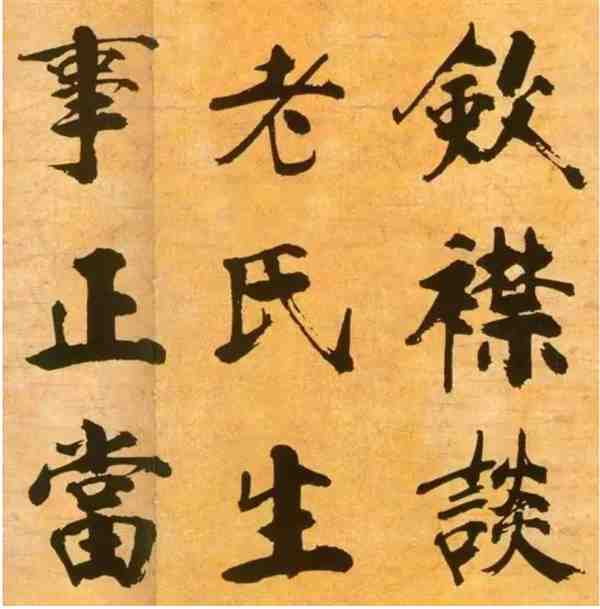 斂襟談
老氏生
事正當